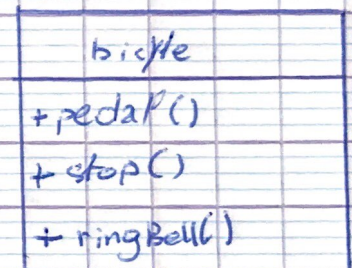 bicycle
+pedal()
+ stop()
+ ringBell()